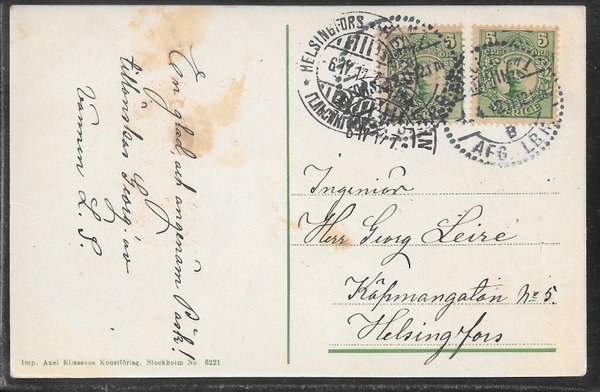 En glad och angenäm Påsk!
tillönskas Georg av
Vännen L. S.
HELSINGFORS
6.IV.12.7
5
5
SVERIGE
B
AFG. LBR
Ingeniör
Herr Georg Leire
Köpmangatan No 5.
Helsingfors
Imp. Axel Eliassons Konstförlag, Stockholm No. 6221